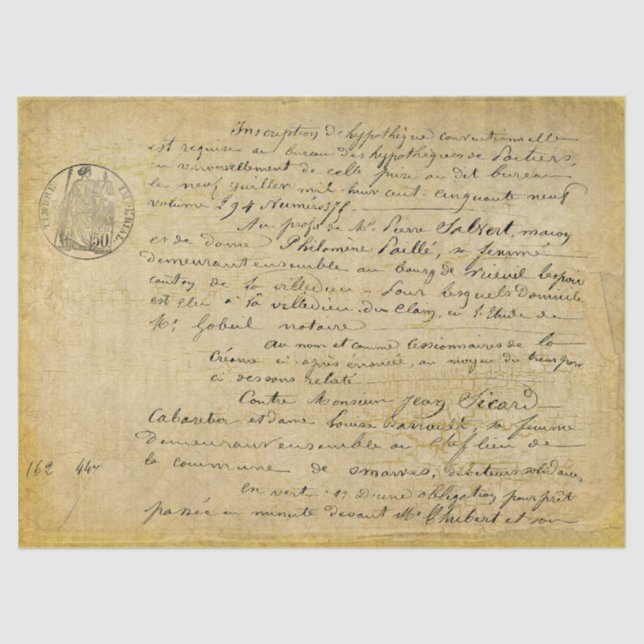 Inscription d'hypothèque conventionnelle
est requise au bureau des hypothèques de Poitiers,
en renouvellement de celle prise au dit bureau
le neuf juillet mil huit cent cinquante neuf
volume 294 Numéro
Au profit de Mr. Pierre Salvert, maçon
et de dame Philomène Paillé, sa femme
demeurant ensemble au bourg de
canton de la villedieu - Pour lesquels Domicile
est élu à la villedieu du Clain, en l'Etude de
Me. Gobeil notaire
au nom et comme cessionnaires de la
Créance ci-après énoncée, au moyen du transport
ci dessous relaté
Contre Monsieur Jean Sicard
Cabaretier et dame Louise sa femme
Demeurant ensemble au Chef lieu de
la commune de smarves, débiteurs solidaires
En vertu 1o D'une obligation pour prêt
passée en minute devant Me Chubert et son
162 447
TIMBRE IMPERIAL
50